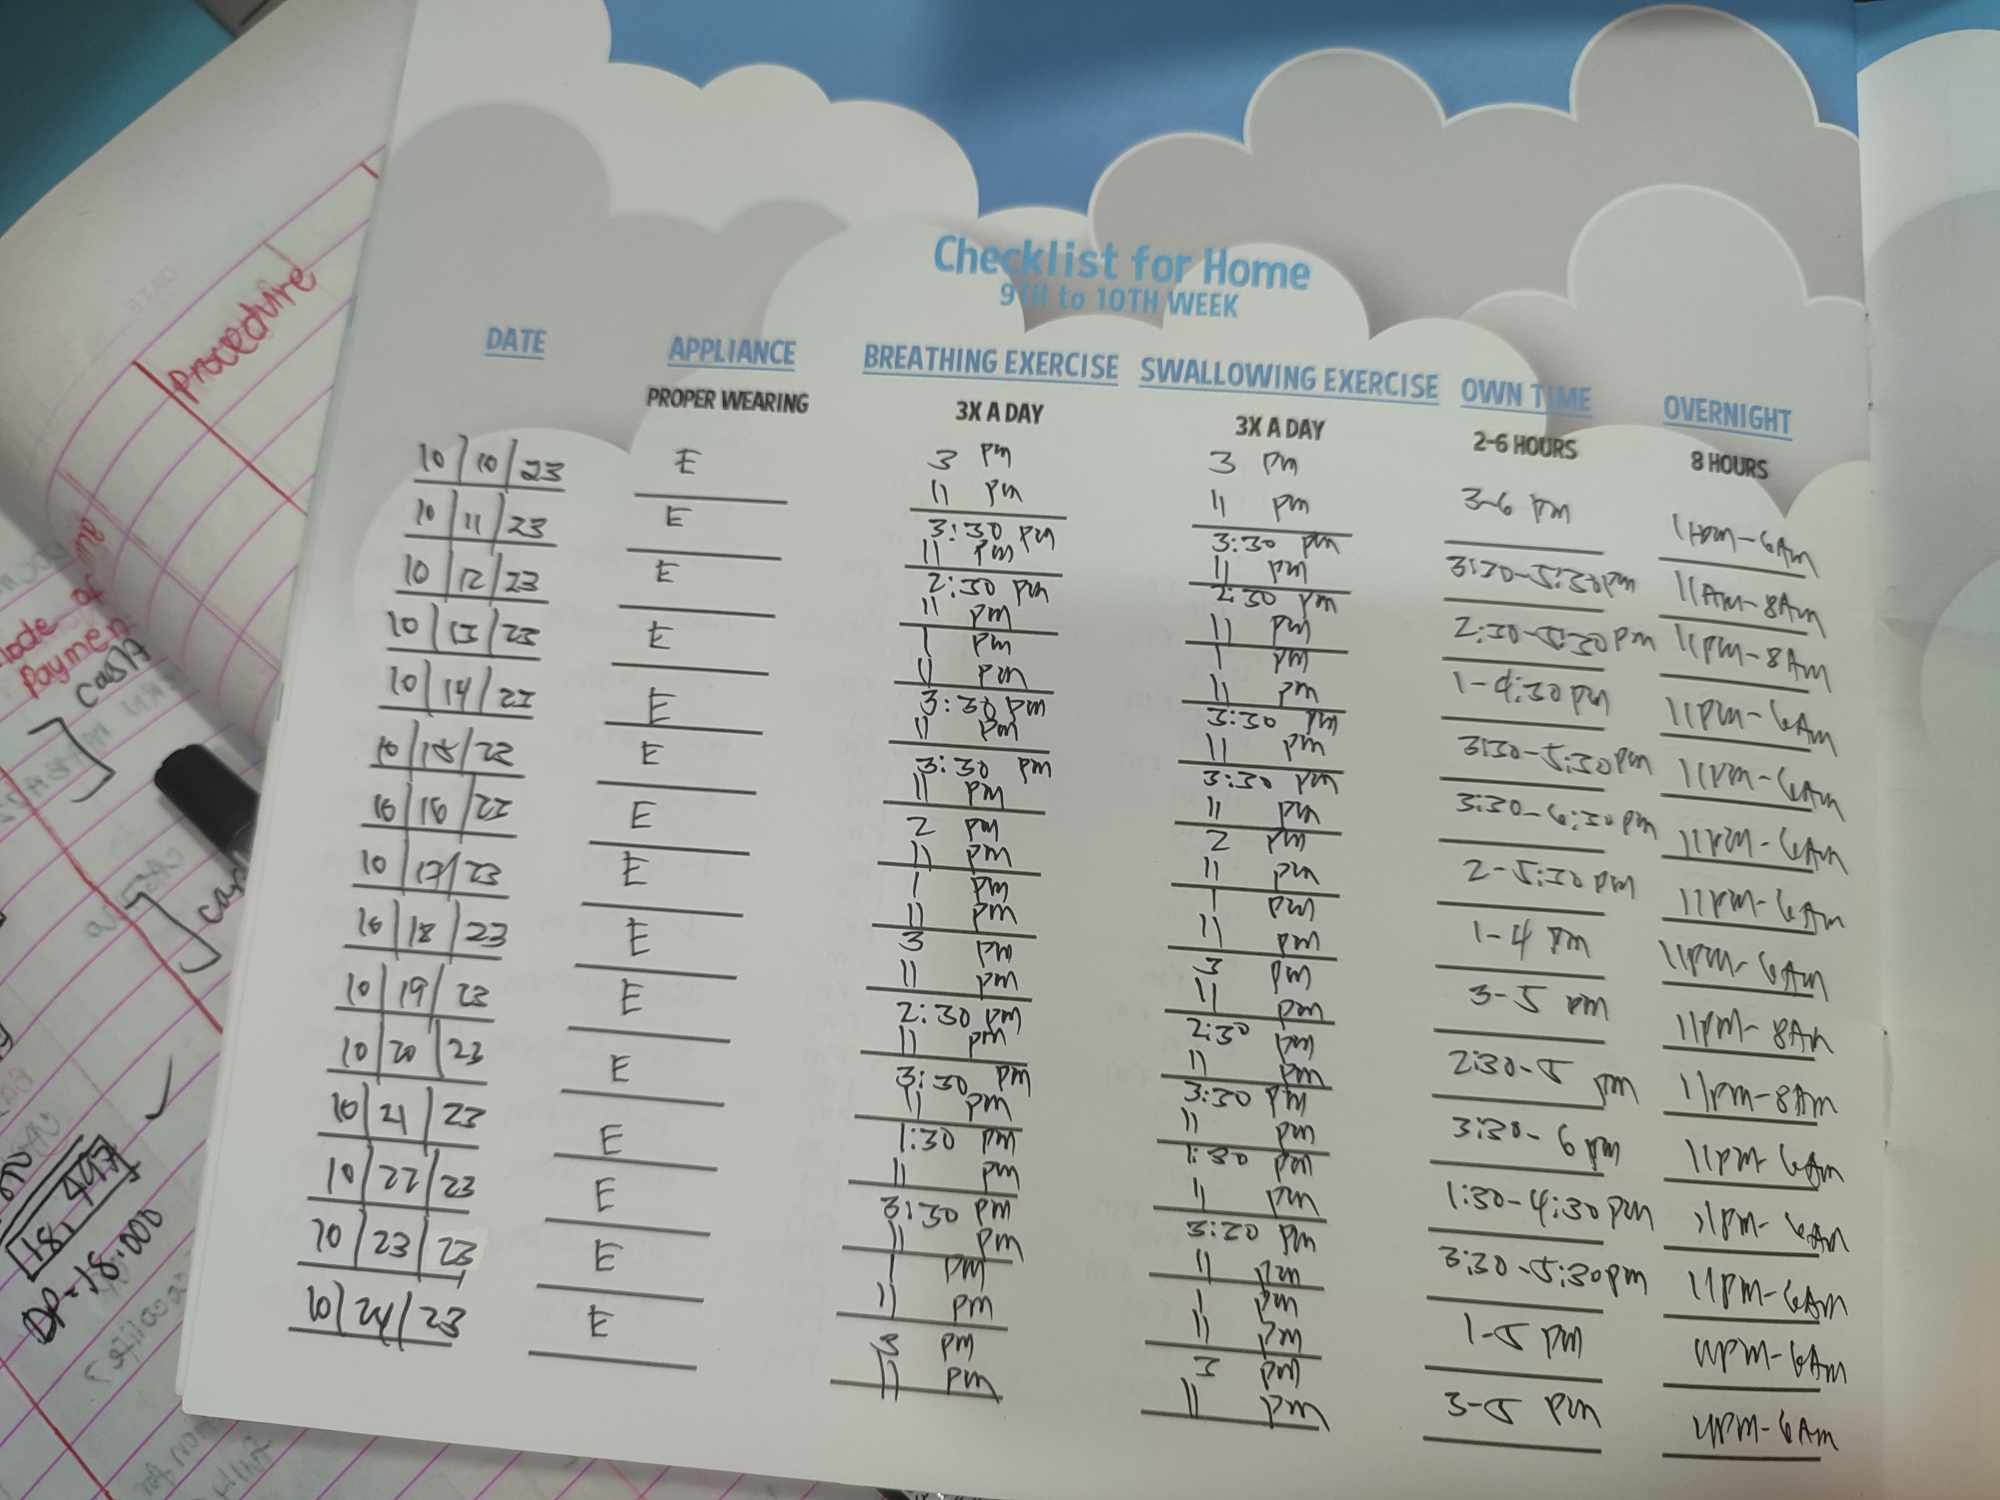 Checklist for Home
9TH to 10TH WEEK
DATE APPLIANCE BREATHING EXERCISE SWALLOWING EXERCISE OWN TIME OVERNIGHT
PROPER WEARING 3X A DAY 3X A DAY 2-6 HOURS 8 HOURS
10/10/23 E 3 pm 3 pm
11 pm 11 pm 3-6 pm 11pm-6Am
10/11/23 E 3:30 pm 3:30 pm
11 pm 11 pm 3:30-5:30pm 11Am-8Am
10/12/23 E 2:30 pm 2:30 pm
11 pm 11 pm 2:30-5:30 pm 11pm-8Am
10/13/23 E 1 pm 1 pm
11 pm 11 pm 1-4:30 pm 11pm-6Am
10/14/23 E 3:30 pm 3:30 pm
11 pm 11 pm 3:30-5:30pm 11pm-6Am
10/15/23 E 3:30 pm 3:30 pm
11 pm 11 pm 3:30-6:30 pm 11pm-6Am
10/16/23 E 2 pm 2 pm
11 pm 11 pm 2-5:30 pm 11pm-6Am
10/17/23 E 1 pm 1 pm
11 pm 11 pm 1-4 pm 11pm-6Am
10/18/23 E 3 pm 3 pm
11 pm 11 pm 3-5 pm 11pm-8Am
10/19/23 E 2:30 pm 2:30 pm
11 pm 11 pm 2:30-5 pm 11pm-8Am
10/20/23 E 3:30 pm 3:30 pm
11 pm 11 pm 3:30-6 pm 11pm-6Am
10/21/23 E 1:30 pm 1:30 pm
11 pm 11 pm 1:30-4:30 pm 11pm-6Am
10/22/23 E 3:30 pm 3:20 pm
11 pm 11 pm 3:30-5:30pm 11pm-6Am
10/23/23 E 1 pm 1 pm
11 pm 11 pm 1-5 pm 11pm-6Am
10/24/23 E 3 pm 3 pm
11 pm 11 pm 3-5 pm 11pm-6Am
Procedure
Mode of
Payment
cash
18,497
DP=18,000